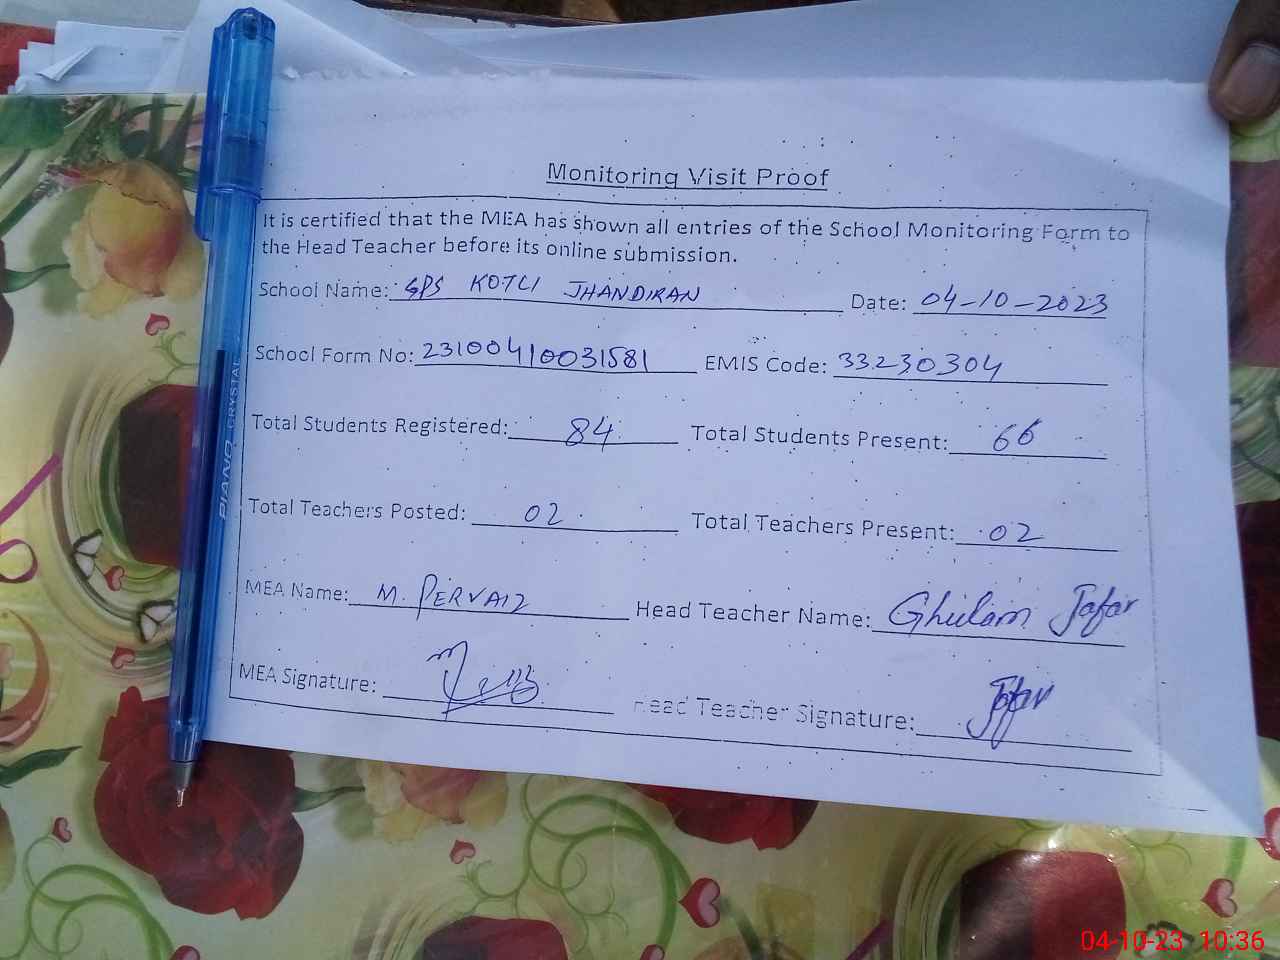 Monitoring Visit Proof
It is certified that the MEA has shown all entries of the School Monitoring Form to
the Head Teacher before its online submission.
School Name: GPS KOTLI JHANDIRAN Date: 04-10-2023
School Form No: 23100410031581 EMIS Code: 33230304
Total Students Registered: 84 Total Students Present: 66
Total Teachers Posted: 02 Total Teachers Present: 02
MEA Name: M. PERVAIZ Head Teacher Name: Ghulam Jafar
MEA Signature: Head Teacher Signature: Jafar
PIANO CRYSTAL
04-10-23 10:36